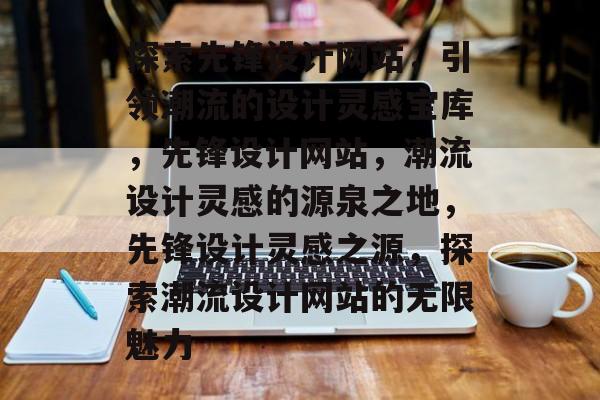 探索先锋设计网站，引
领潮流的设计灵感宝库
，先锋设计网站，潮流
设计灵感的源泉之地，
先锋设计灵感之源，探
索潮流设计网站的无限
魅力